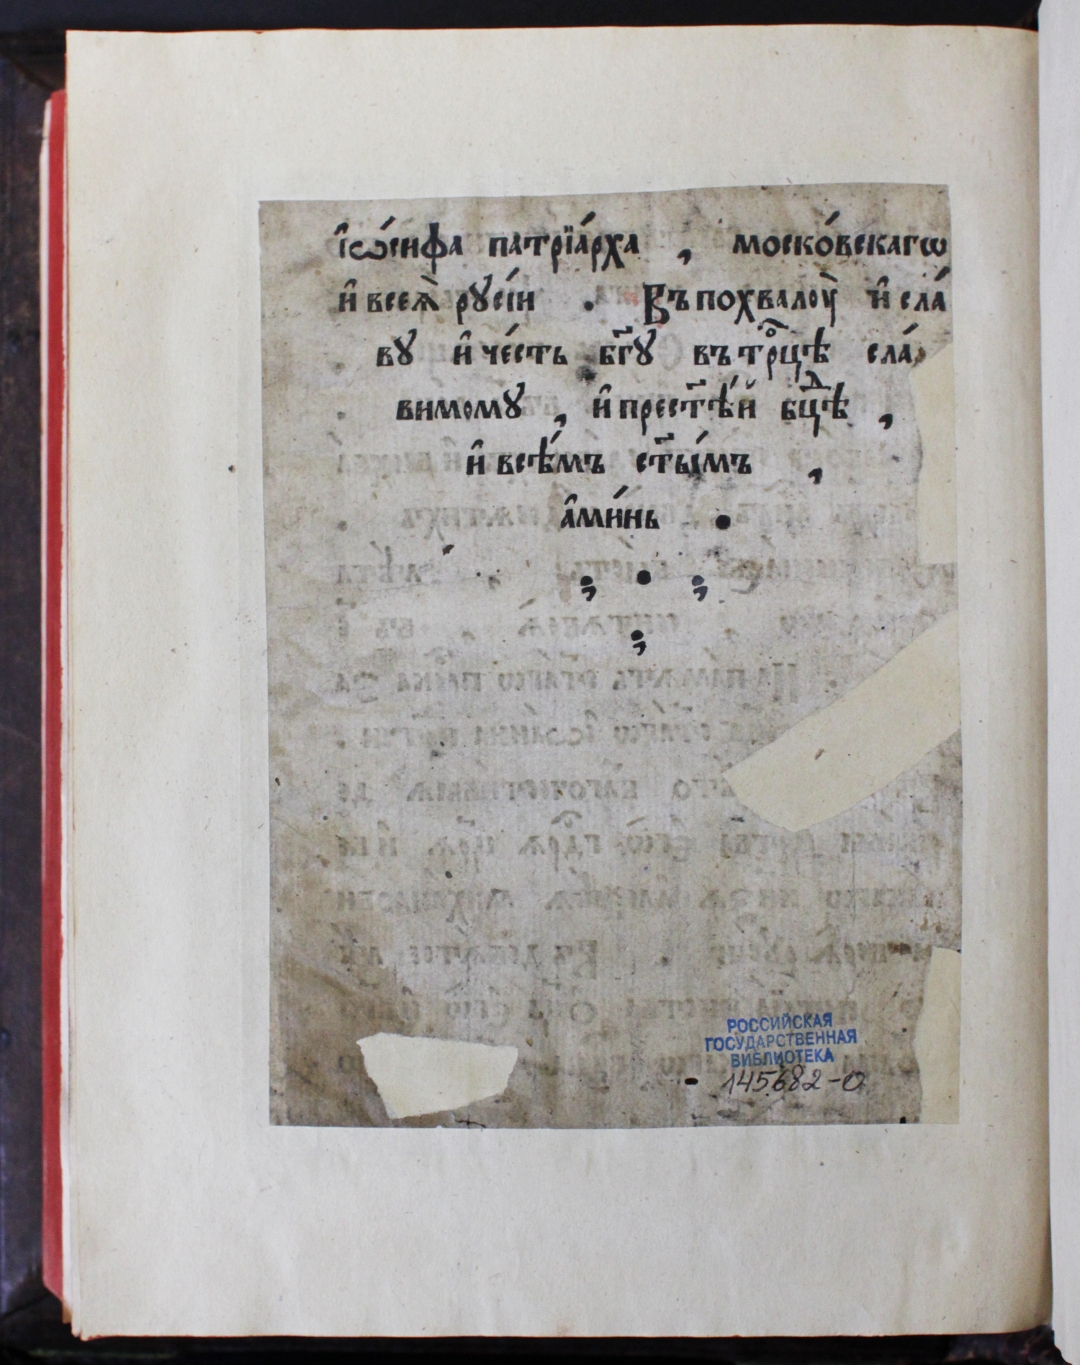 і҆ѡ́сифа патрїа́рха , моско́вскагѡ
и҆ всеѧ̀ рꙋсі́и . Въ похвалоу̀ и҆ сла́
вꙋ и҆ че́сть бг҃ꙋ въ трⷪ҇цѣ сла́
вимомꙋ , и҆ прест҃ѣ́й бцⷣѣ ,
и҆ всѣ́мъ ст҃ы́мъ ,
а҆ми́нь .
РОССИЙСКАЯ
ГОСУДАРСТВЕННАЯ
БИБЛИОТЕКА
145682-О